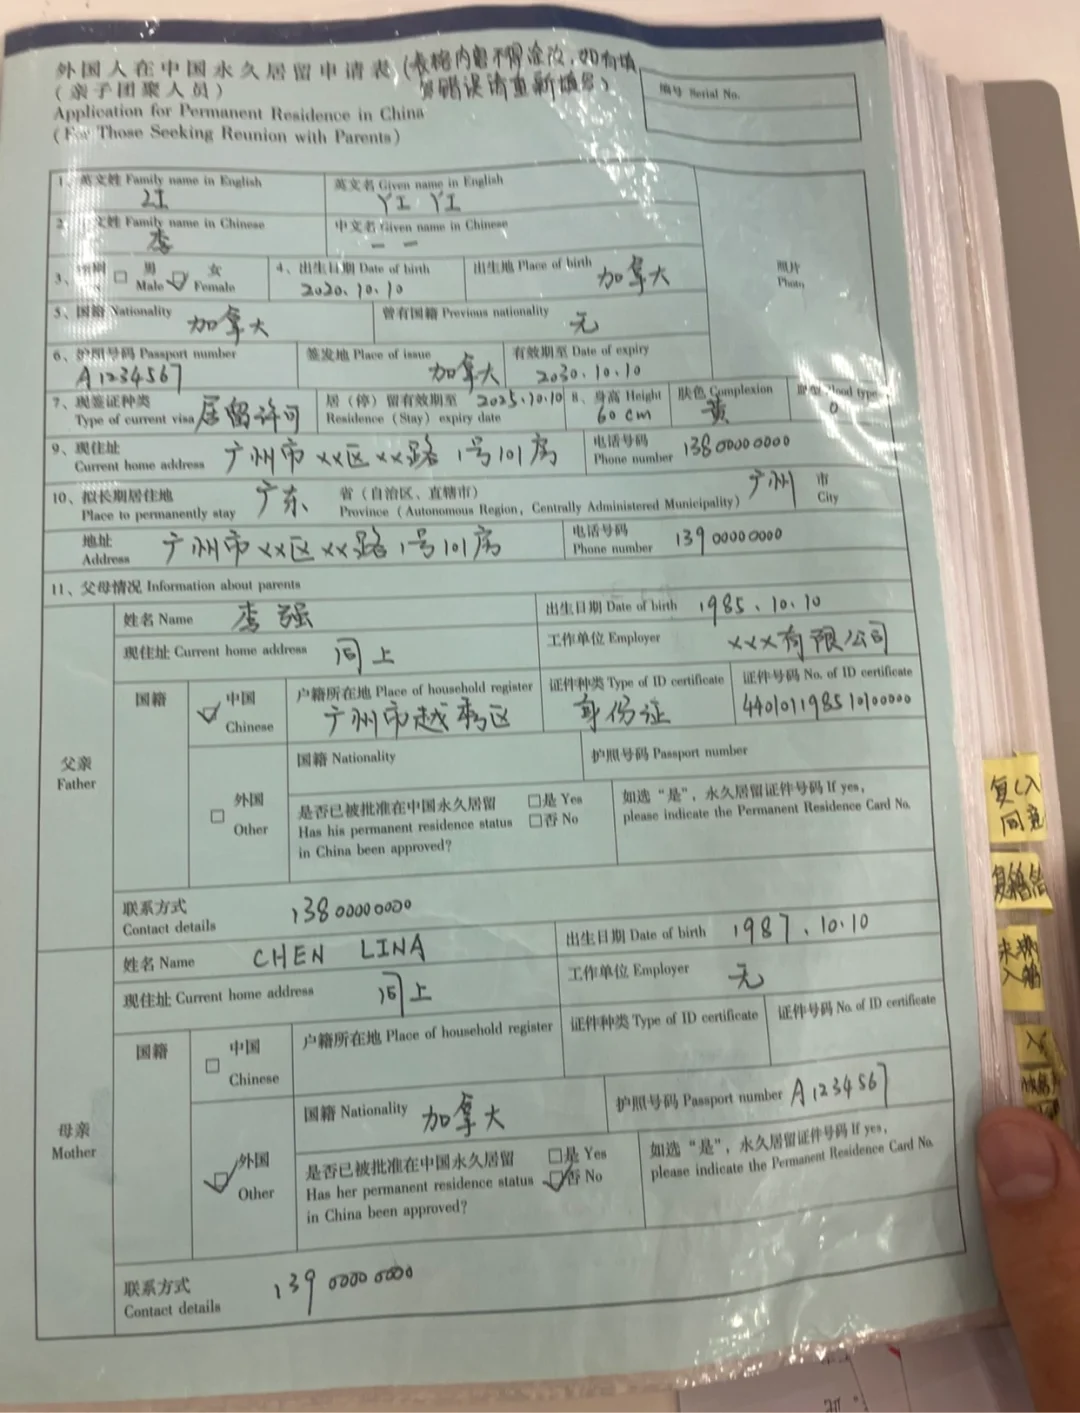 外国人在中国永久居留申请表(表格内容不得涂改,如有填
(亲子团聚人员) 写错误请重新填写)
Application for Permanent Residence in China
(For Those Seeking Reunion with Parents)
编号 Serial No.
1、英文姓 Family name in English 英文名 Given name in English
LI YI YI
2、中文姓 Family name in Chinese 中文名 Given name in Chinese
李 一一
3、性别 □ 男 Male ☑ 女 Female 4、出生日期 Date of birth 出生地 Place of birth 加拿大
2020.10.10
照片
Photo
5、国籍 Nationality 加拿大 曾有国籍 Previous nationality 无
6、护照号码 Passport number 签发地 Place of issue 加拿大 有效期至 Date of expiry
A1234567 2030.10.10
7、现签证种类 居留许可 居(停)留有效期至 2025.10.10 8、身高 Height 肤色 Complexion 血型 Blood type
Type of current visa Residence (Stay) expiry date 60cm 黄 O
9、现住址 广州市××区××路1号101房 电话号码 13800000000
Current home address Phone number
10、拟长期居住地 广东 省(自治区、直辖市) 广州 市
Place to permanently stay Province (Autonomous Region, Centrally Administered Municipality) City
地址 广州市××区××路1号101房 电话号码 13900000000
Address Phone number
11、父母情况 Information about parents
父亲
Father
姓名 Name 李强 出生日期 Date of birth 1985.10.10
现住址 Current home address 同上 工作单位 Employer ×××有限公司
国籍 ☑ 中国 户籍所在地 Place of household register 证件种类 Type of ID certificate 证件号码 No. of ID certificate
Chinese 广州市越秀区 身份证 440101198510100000
国籍 Nationality 护照号码 Passport number
□ 外国 是否已被批准在中国永久居留 □是 Yes 如选“是”,永久居留证件号码 If yes,
Other Has his permanent residence status □否 No please indicate the Permanent Residence Card No.
in China been approved?
联系方式 13800000000
Contact details
母亲
Mother
姓名 Name CHEN LINA 出生日期 Date of birth 1987.10.10
现住址 Current home address 同上 工作单位 Employer 无
国籍 □ 中国 户籍所在地 Place of household register 证件种类 Type of ID certificate 证件号码 No. of ID certificate
Chinese
国籍 Nationality 加拿大 护照号码 Passport number A1234567
☑ 外国 是否已被批准在中国永久居留 □是 Yes 如选“是”,永久居留证件号码 If yes,
Other Has her permanent residence status ☑否 No please indicate the Permanent Residence Card No.
in China been approved?
联系方式 13900000000
Contact details
复(入
同意
复籍
入籍